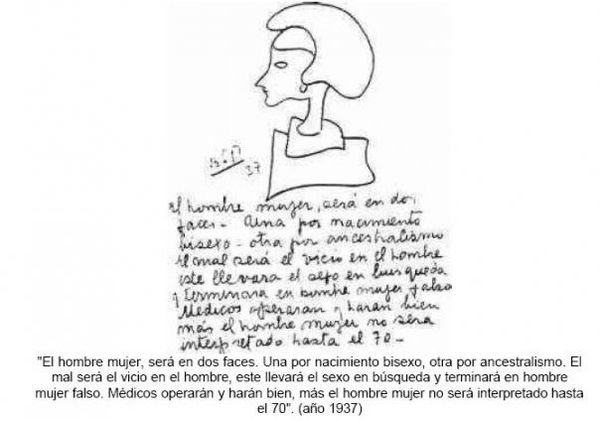 37
El hombre mujer, será en dos
faces - Una por nacimiento
bisexo - otra por ancestralismo
El mal será el vicio en el hombre
este llevara el sexo en busqueda
y terminara en hombre mujer falso
Medicos operaran y haran bien
más el hombre mujer no sera
interpretado hasta el 70 -
"El hombre mujer, será en dos faces. Una por nacimiento bisexo, otra por ancestralismo. El
mal será el vicio en el hombre, este llevará el sexo en búsqueda y terminará en hombre
mujer falso. Médicos operarán y harán bien, más el hombre mujer no será interpretado hasta
el 70". (año 1937)